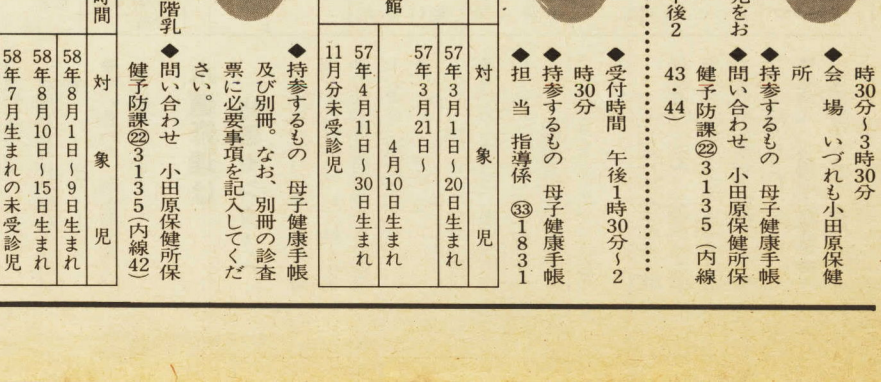 時30分～3時30分
◆会　場　いづれも小田原保健
所
◆持参するもの　母子健康手帳
◆問い合わせ　小田原保健所保
健予防課㉒3135（内線
43・44）
午後2
◆受付時間　午後1時30分～2
時30分
◆持参するもの　母子健康手帳
◆担　当　指導係　㉝1831
対象児
57年3月1日～20日生まれ
57年3月21日～
4月10日生まれ
57年4月11日～30日生まれ
11月分未受診児
館
◆持参するもの　母子健康手帳
及び別冊。なお、別冊の診査
票に必要事項を記入してくだ
さい。
◆問い合わせ　小田原保健所保
健予防課㉒3135（内線42）
階乳
時間
対象児
58年8月1日～9日生まれ
58年8月10日～15日生まれ
58年7月生まれの未受診児